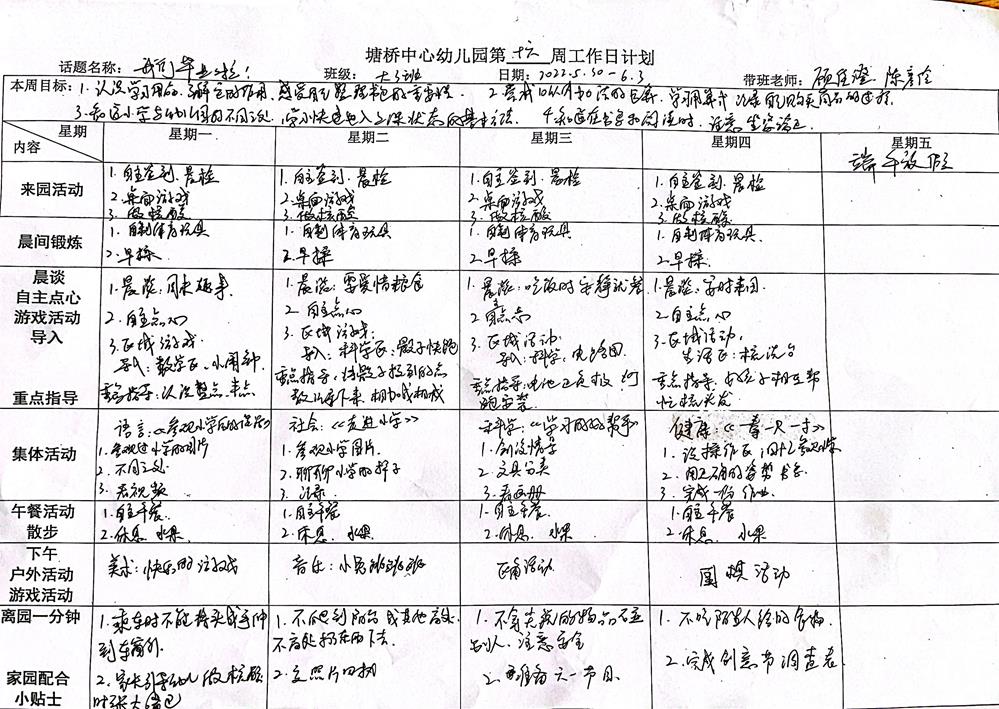 塘桥中心幼儿园第十六周工作日计划
话题名称：我们毕业啦！ 班级：大班 日期：2022.5.30-6.3 带班老师：
本周目标：1. 认识学习用品，了解它的作用，感受自己整理书包的重要性。 2. 尝试10以内加法的
3. 知道小学与幼儿园的不同之处，学习快速进入上课状态的基本方法。 4. 知道在书写和阅读时，注意坐姿端正。
星期 星期一 星期二 星期三 星期四 星期五
内容
端午放假
来园活动
1. 自主签到、晨检
2. 桌面游戏
3. 做核酸
1. 自主签到、晨检
2. 桌面游戏
3. 做核酸
1. 自主签到、晨检
2. 桌面游戏
3. 做核酸
1. 自主签到、晨检
2. 桌面游戏
3. 做核酸
晨间锻炼
1. 自制体育玩具
2. 早操
1. 自制体育玩具
2. 早操
1. 自制体育玩具
2. 早操
1. 自制体育玩具
2. 早操
晨谈
自主点心
游戏活动
导入
重点指导
1. 晨谈：周末趣事
2. 自主点心
3. 区域游戏
导入：数学区、小闹钟
重点指导：认识整点、半点
1. 晨谈：要爱惜粮食
2. 自主点心
3. 区域游戏
导入：科学区：骰子快跑
重点指导：将骰子投到的点
数记录下来，相加或相减
1. 晨谈：吃饭时安静就餐
2. 自主点心
3. 区域活动
导入：科学，电路图
重点指导：电池正负极如何
安装
1. 晨谈：按时来园
2. 自主点心
3. 区域活动，
生活区：梳洗台
重点指导：女孩子相互帮
忙梳头发
集体活动
语言：《参观小学》
1. 参观过小学的图片
2. 不同之处
3. 看视频
社会：《走进小学》
1. 参观小学图片
2. 聊聊小学的样子
3. 记录
科学：《学习的好帮手》
1. 创设情景
2. 文具分类
3. 看画册
健康：《一尊一尺一寸》
2. 用正确的姿势书写
3. 完成一份作业
午餐活动
散步
1. 自主午餐
2. 休息、水果
1. 自主午餐
2. 休息、水果
1. 自主午餐
2. 休息、水果
1. 自主午餐
2. 休息、水果
下午
户外活动
游戏活动
美术：快乐的游戏
音乐：小兔跳跳跳
区角活动
围棋活动
离园一分钟
家园配合
小贴士
1. 乘车时不能将头或手伸
到车窗外
2. 家长引导幼儿做核酸
时张大嘴巴
1. 不爬到阳台或其他高处，
不高处扔东西下去
2. 交照片
1. 不拿尖锐的物品对立
别人，注意安全
2. 准备六一节目
1. 不吃陌生人给的食物
2. 完成创意节调查表